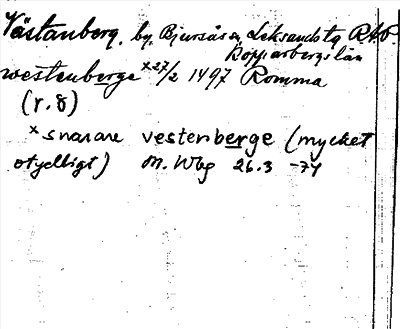 Västanberg, by, Bjursås sn, Leksands tg RAP.
Kopparbergs län
westenberge x 27/2 1497 Romma
(r. 8)
x snarare vestenberge (mycket
otydligt) M. Wbg 26.3 -74